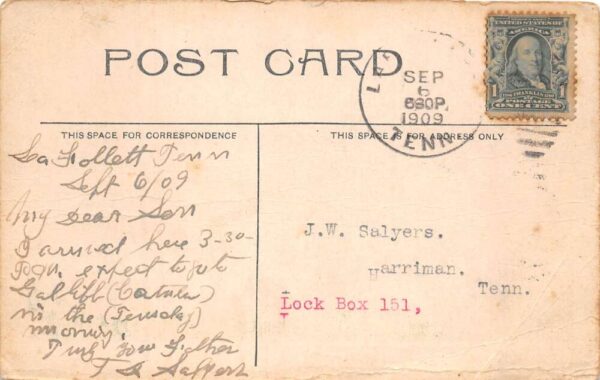 POST CARD
SEP
6
630P
1909
TENN
UNITED STATES OF
AMERICA
1 1
POSTAGE
ONE CENT
THIS SPACE FOR CORRESPONDENCE
THIS SPACE IS FOR ADDRESS ONLY
La Follett Tenn
Sept 6/09
My Dear Son
I arrived here 3-30-
P.M. expect to go to
in the (Tuesday)
morning.
Truly your Father
J.W. Salyers.
Harriman.
Tenn.
Lock Box 151,